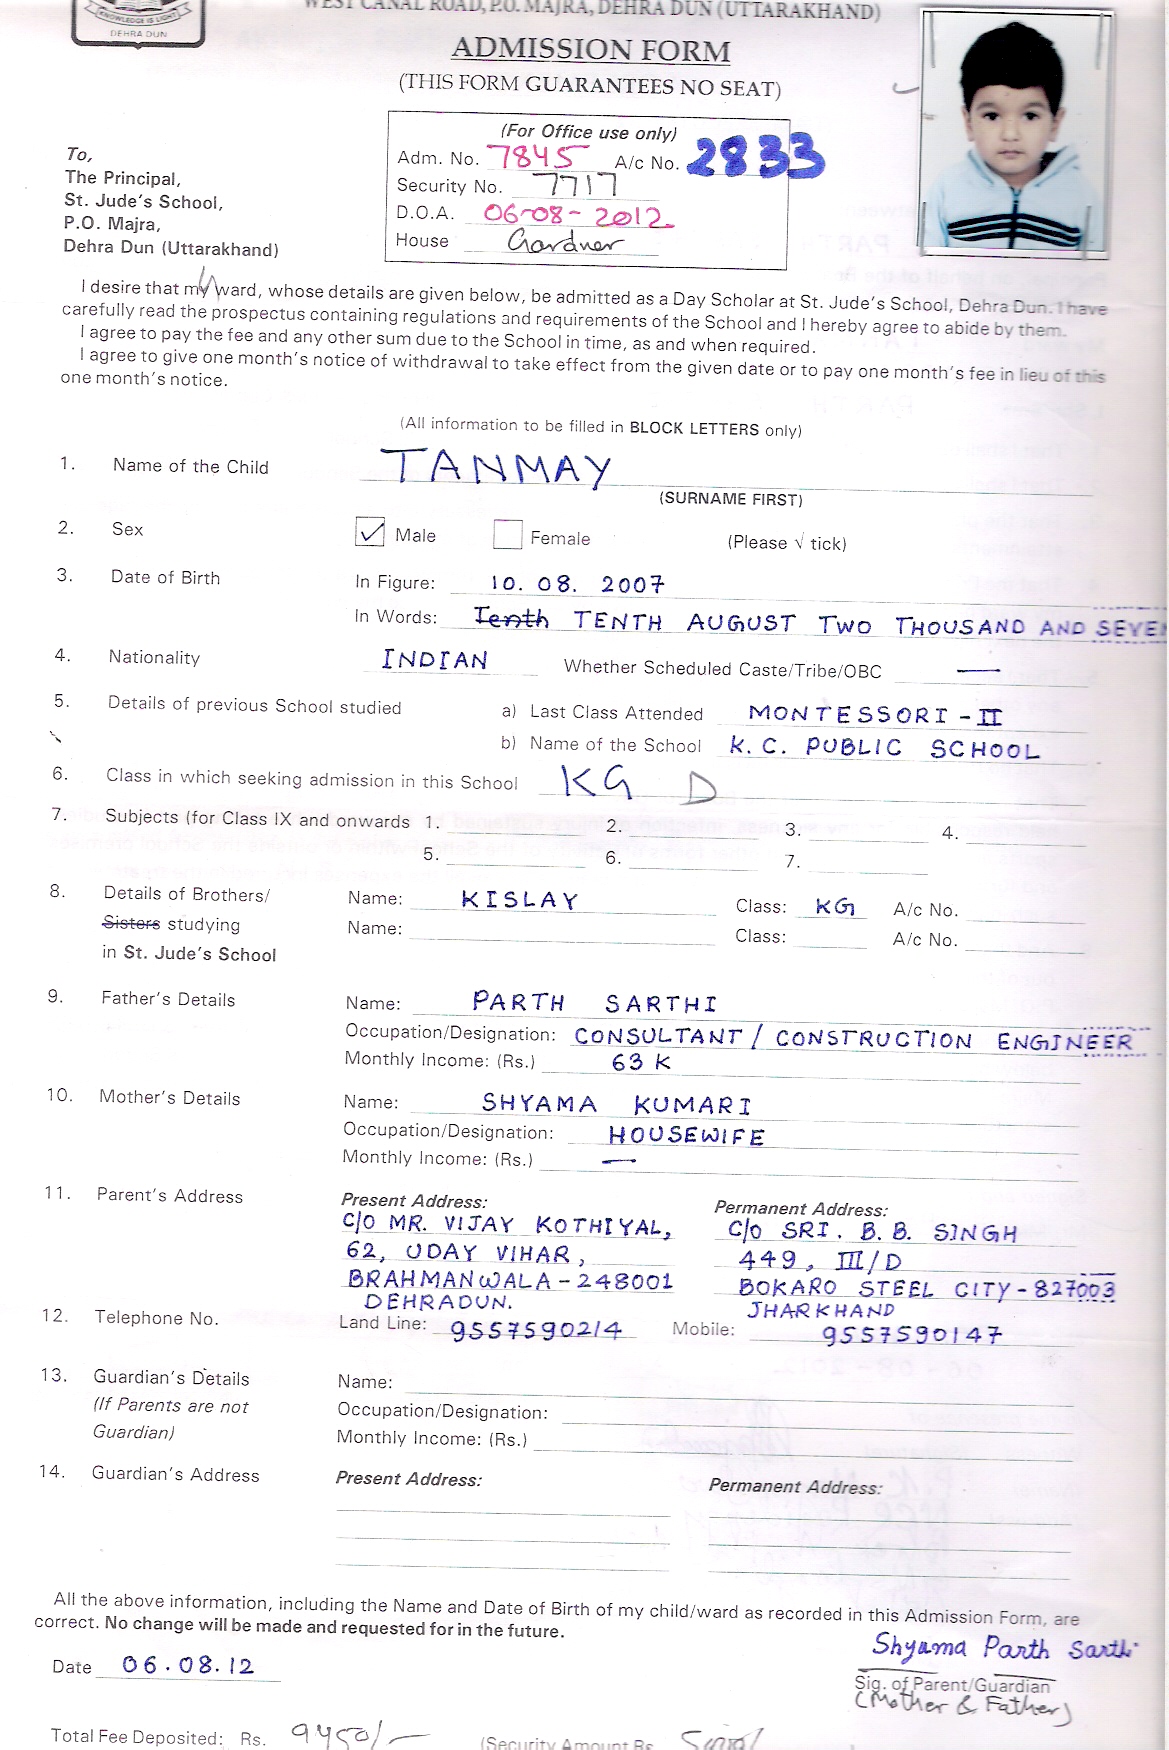 KNOWLEDGE IS LIGHT
DEHRA DUN
WEST CANAL ROAD, P.O. MAJRA, DEHRA DUN (UTTARAKHAND)
ADMISSION FORM
(THIS FORM GUARANTEES NO SEAT)
(For Office use only)
Adm. No. 7845 A/c No. 2833
Security No. 7717
D.O.A. 06-08-2012
House Gardner
To,
The Principal,
St. Jude's School,
P.O. Majra,
Dehra Dun (Uttarakhand)
I desire that my ward, whose details are given below, be admitted as a Day Scholar at St. Jude's School, Dehra Dun. I have
carefully read the prospectus containing regulations and requirements of the School and I hereby agree to abide by them.
I agree to pay the fee and any other sum due to the School in time, as and when required.
I agree to give one month's notice of withdrawal to take effect from the given date or to pay one month's fee in lieu of this
one month's notice.
(All information to be filled in BLOCK LETTERS only)
1. Name of the Child TANMAY
(SURNAME FIRST)
2. Sex Male Female (Please √ tick)
3. Date of Birth In Figure: 10. 08. 2007
In Words: Tenth TENTH AUGUST TWO THOUSAND AND SEVEN
4. Nationality INDIAN Whether Scheduled Caste/Tribe/OBC —
5. Details of previous School studied a) Last Class Attended MONTESSORI - II
b) Name of the School K. C. PUBLIC SCHOOL
6. Class in which seeking admission in this School KG D
7. Subjects (for Class IX and onwards 1. 2. 3. 4.
5. 6. 7.
8. Details of Brothers/ Name: KISLAY Class: KG A/c No.
Sisters studying Name: Class: A/c No.
in St. Jude's School
9. Father's Details Name: PARTH SARTHI
Occupation/Designation: CONSULTANT / CONSTRUCTION ENGINEER
Monthly Income: (Rs.) 63 K
10. Mother's Details Name: SHYAMA KUMARI
Occupation/Designation: HOUSEWIFE
Monthly Income: (Rs.) —
11. Parent's Address Present Address: Permanent Address:
C/O MR. VIJAY KOTHIYAL, C/O SRI. B. B. SINGH
62, UDAY VIHAR, 449, III/D
BRAHMANWALA - 248001 BOKARO STEEL CITY - 827003
DEHRADUN. JHARKHAND
12. Telephone No. Land Line: 9557590214 Mobile: 9557590147
13. Guardian's Details Name:
(If Parents are not Occupation/Designation:
Guardian) Monthly Income: (Rs.)
14. Guardian's Address Present Address: Permanent Address:
All the above information, including the Name and Date of Birth of my child/ward as recorded in this Admission Form, are
correct. No change will be made and requested for in the future.
Shyama Parth Sarthi
Date 06.08.12
Sig. of Parent/Guardian
(Mother & Father)
Total Fee Deposited: Rs. 9450/- (Security Amount Rs.